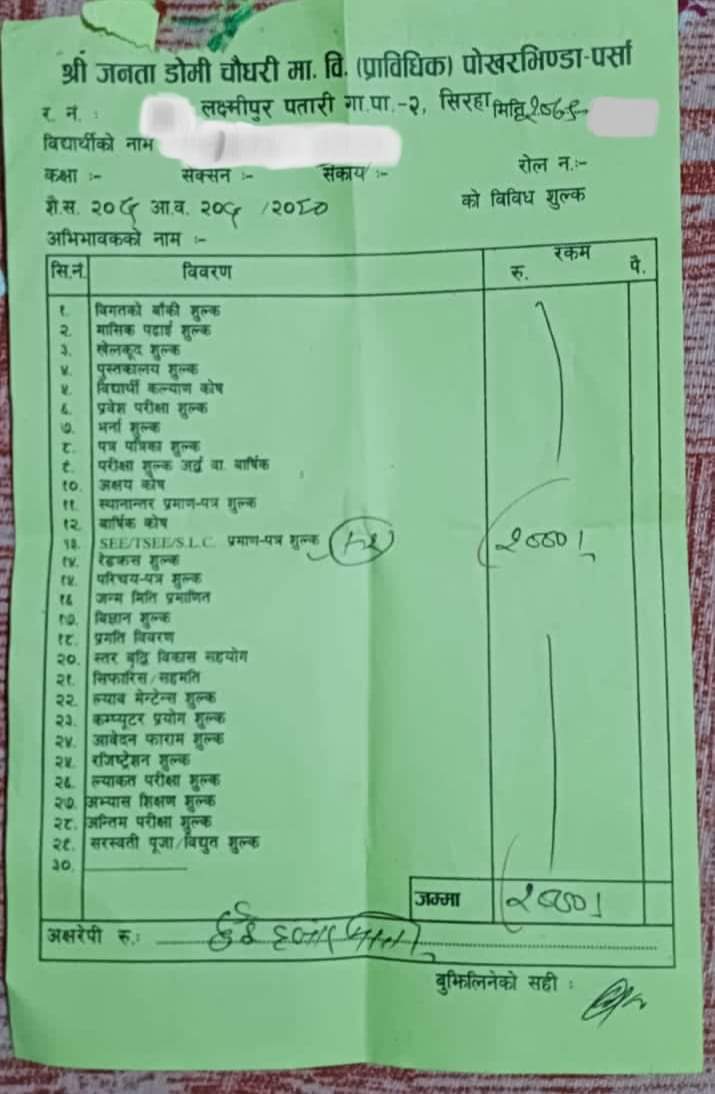 श्री जनता डोमी चौधरी मा. वि. (प्राविधिक) पोखरभिण्डा-पर्सा
र. नं. : लक्ष्मीपुर पतारी गा.पा.-२, सिरहा मिति
विद्यार्थीको नाम
कक्षा :- सेक्सन :- संकाय :- रोल न.:-
शै.स. २०८ आ.व. २०८ /२०८० को विविध शुल्क
अभिभावकको नाम :-
सि.नं. विवरण रकम रु. पै.
१. विगतको बाँकी शुल्क
२. मासिक पढाई शुल्क
३. खेलकूद शुल्क
४. पुस्तकालय शुल्क
५. विद्यार्थी कल्याण कोष
६. प्रवेश परीक्षा शुल्क
७. भर्ना शुल्क
८. पत्र पत्रिका शुल्क
९. परीक्षा शुल्क अर्द्ध वा. वार्षिक
१०. अक्षय कोष
११. स्थानान्तर प्रमाण-पत्र शुल्क
१२. वार्षिक कोष
१३. SEE/TSEE/S.L.C. प्रमाण-पत्र शुल्क २०००।
१४. रेडक्रस शुल्क
१५. परिचय-पत्र शुल्क
१६ जन्म मिति प्रमाणित
१७. विज्ञान शुल्क
१८. प्रगति विवरण
२०. स्तर बृद्धि विकास सहयोग
२१. सिफारिस/सहमति
२२. ल्याव मेन्टेन्स शुल्क
२३. कम्प्यूटर प्रयोग शुल्क
२४. आवेदन फाराम शुल्क
२५. रजिष्ट्रेशन शुल्क
२६. ल्याकत परीक्षा शुल्क
२७. अभ्यास शिक्षण शुल्क
२८. अन्तिम परीक्षा शुल्क
२९. सरस्वती पूजा/विद्युत शुल्क
३०.
जम्मा २०००।
अक्षरेपी रु.: दुई हजार मात्र
बुझिलिनेको सही :